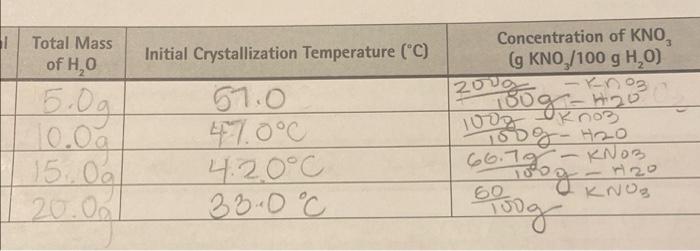 al Total Mass of H₂O Initial Crystallization Temperature (°C) Concentration of KNO₃ (g KNO₃/100 g H₂O)
5.0g 57.0 200g - KNO3 / 100g - H20
10.0g 47.0°C 100g KNO3 / 100g - H20
15.0g 42.0°C 66.7g - KNO3 / 100g - H20
20.0g 33.0 °C 50 KNO3 / 100g